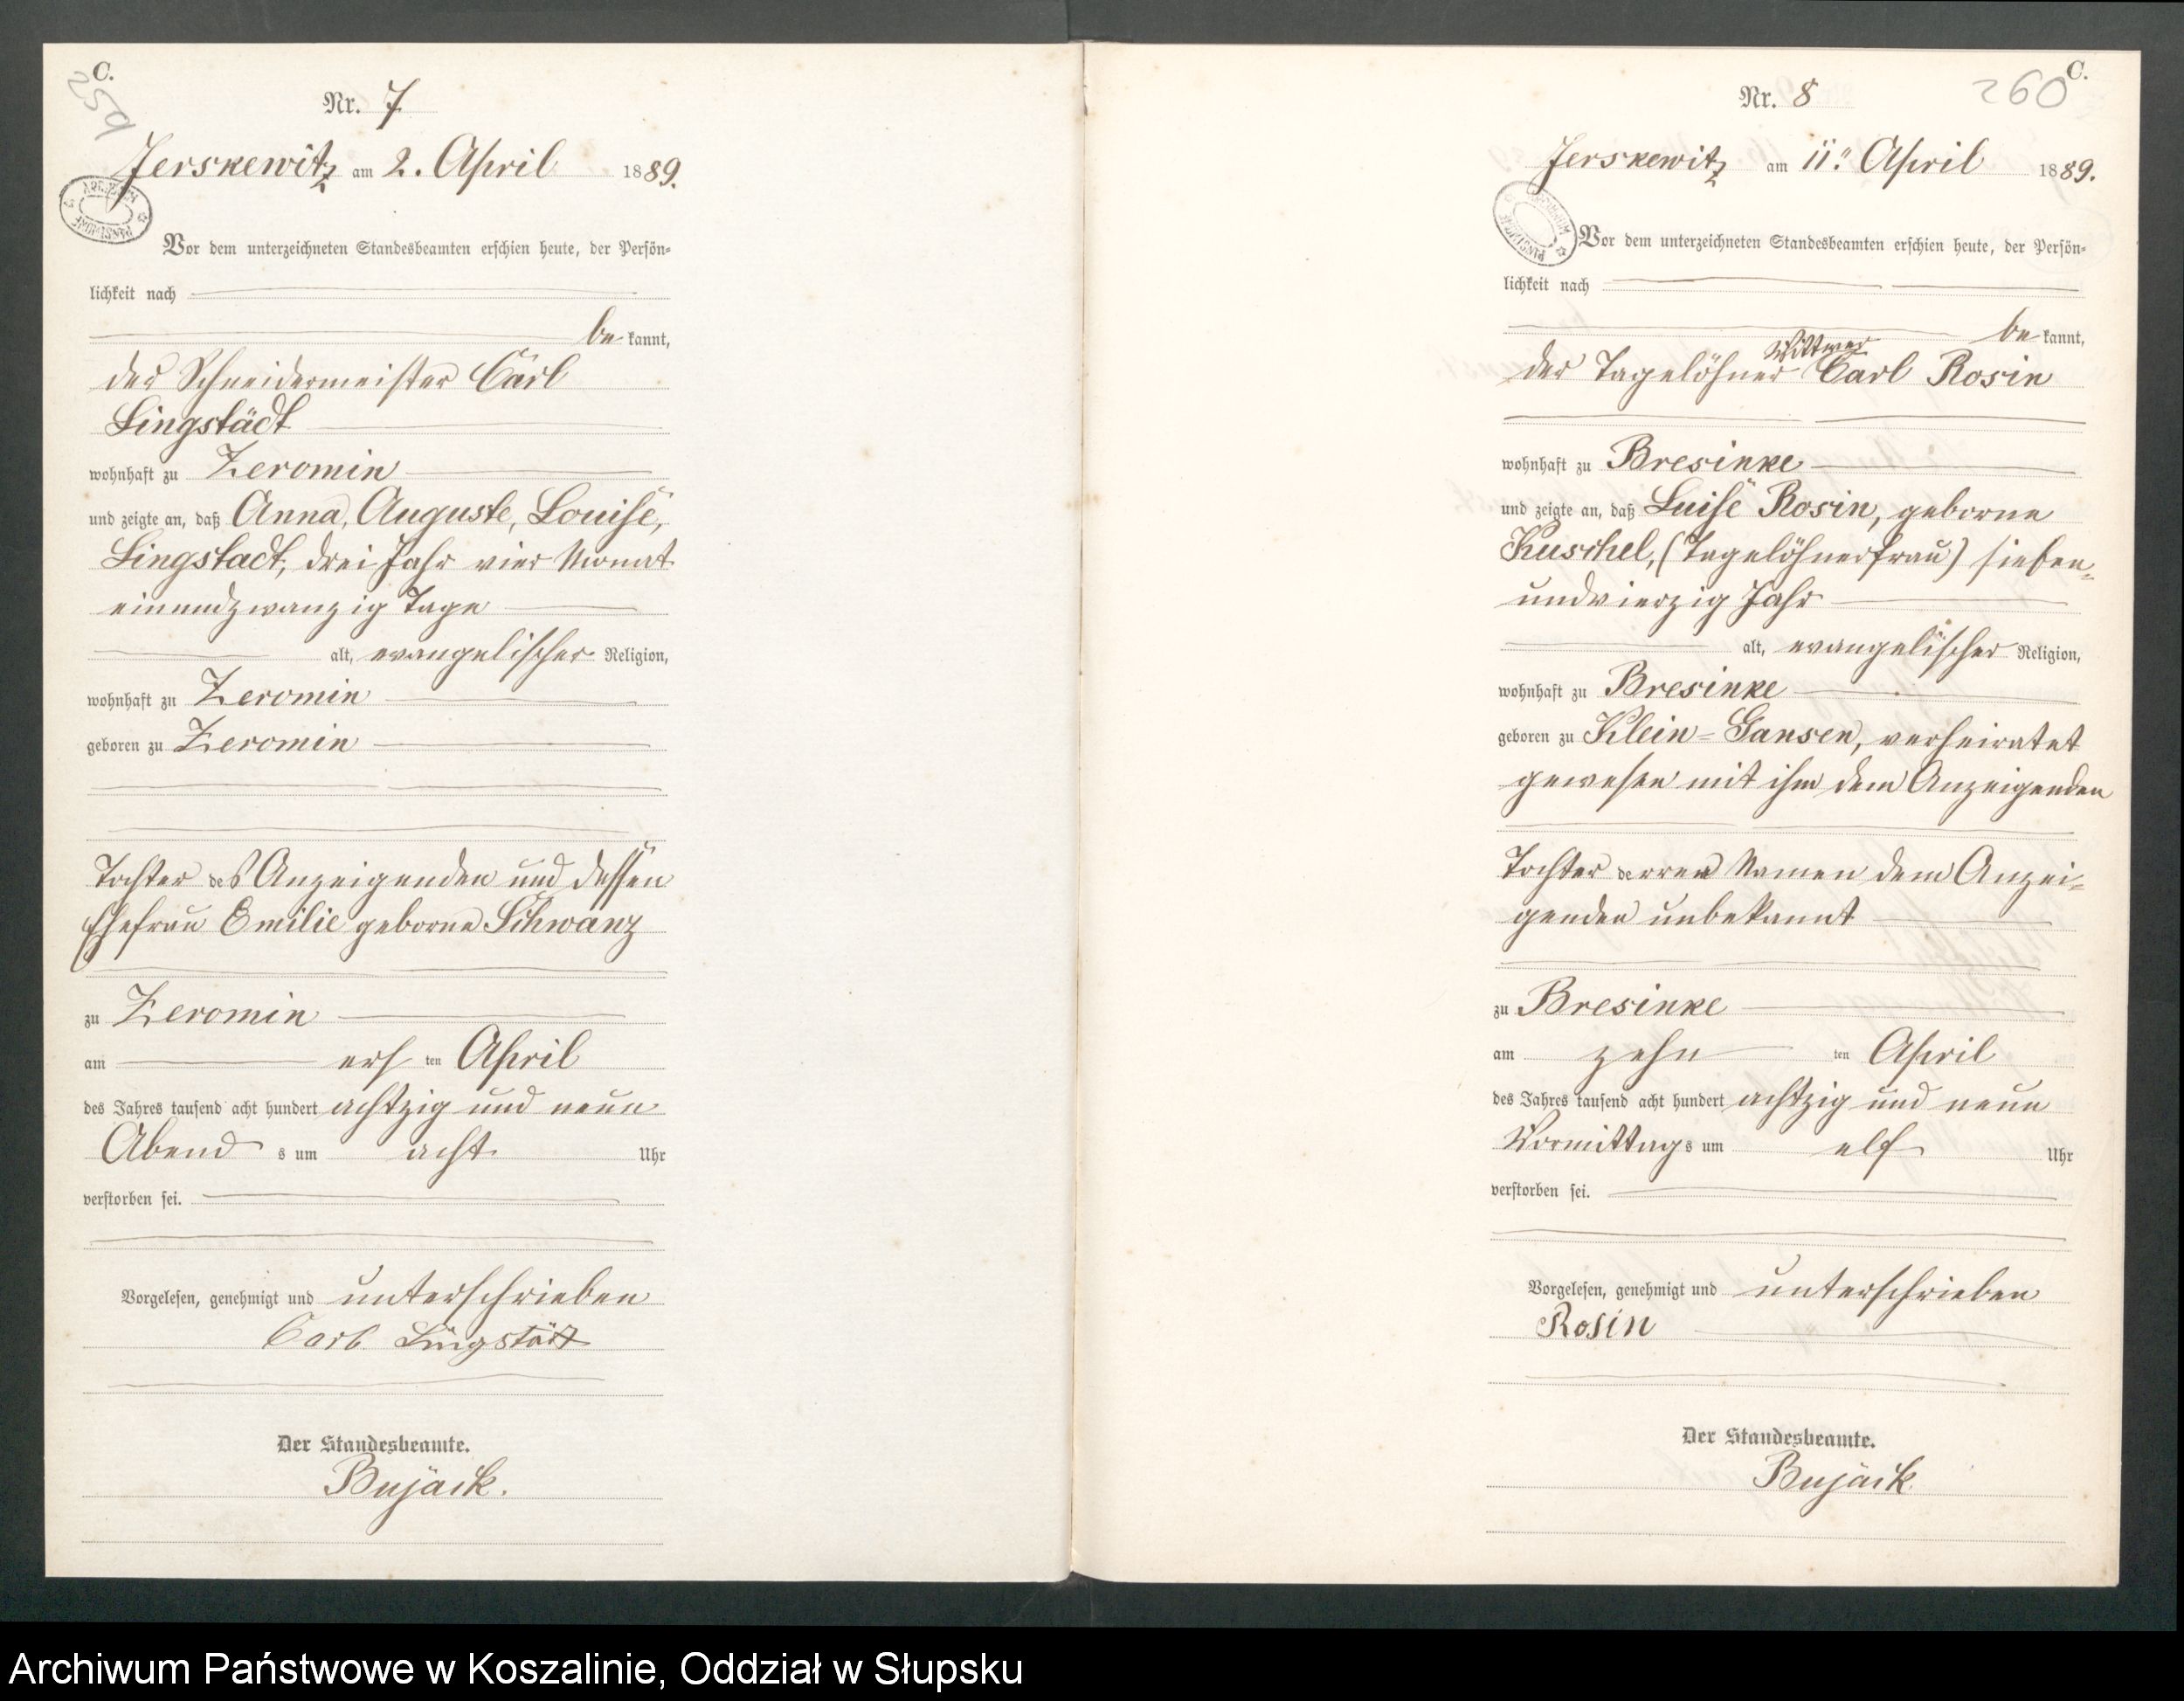 C.
259
Nr. 7
Jerskewitz am 2. April 1889.
Vor dem unterzeichneten Standesbeamten erschien heute, der Persön-
lichkeit nach
be kannt,
der Schneidermeister Carl
Lingstädt
wohnhaft zu Zeromin
und zeigte an, daß Anna, Auguste, Louise,
Lingstadt, drei Jahr vier Monat
einundzwanzig Tage
alt, evangelischer Religion,
wohnhaft zu Zeromin
geboren zu Zeromin
Tochter des Anzeigenden und dessen
Ehefrau Emilie geborne Schwanz
zu Zeromin
am ers ten April
des Jahres tausend acht hundert achtzig und neun
Abend s um acht Uhr
verstorben sei.
Vorgelesen, genehmigt und unterschrieben
Carl Lingstädt
Der Standesbeamte.
Bujack.
C.
260
Nr. 8
Jerskewitz am 11. April 1889.
Vor dem unterzeichneten Standesbeamten erschien heute, der Persön-
lichkeit nach
be kannt,
Wittwer
der Tagelöhner Carl Rosin
wohnhaft zu Bresinke
und zeigte an, daß Luise Rosin, geborne
Kuschel, (Tagelöhnerfrau) sieben-
undvierzig Jahr
alt, evangelischer Religion,
wohnhaft zu Bresinke
geboren zu Klein-Gansen, verheiratet
gewesen mit ihm dem Anzeigenden
Tochter deren Namen dem Anzei-
genden unbekannt
zu Bresinke
am zehn ten April
des Jahres tausend acht hundert achtzig und neun
Vormittags um elf Uhr
verstorben sei.
Vorgelesen, genehmigt und unterschrieben
Rosin
Der Standesbeamte.
Bujack
Archiwum Państwowe w Koszalinie, Oddział w Słupsku